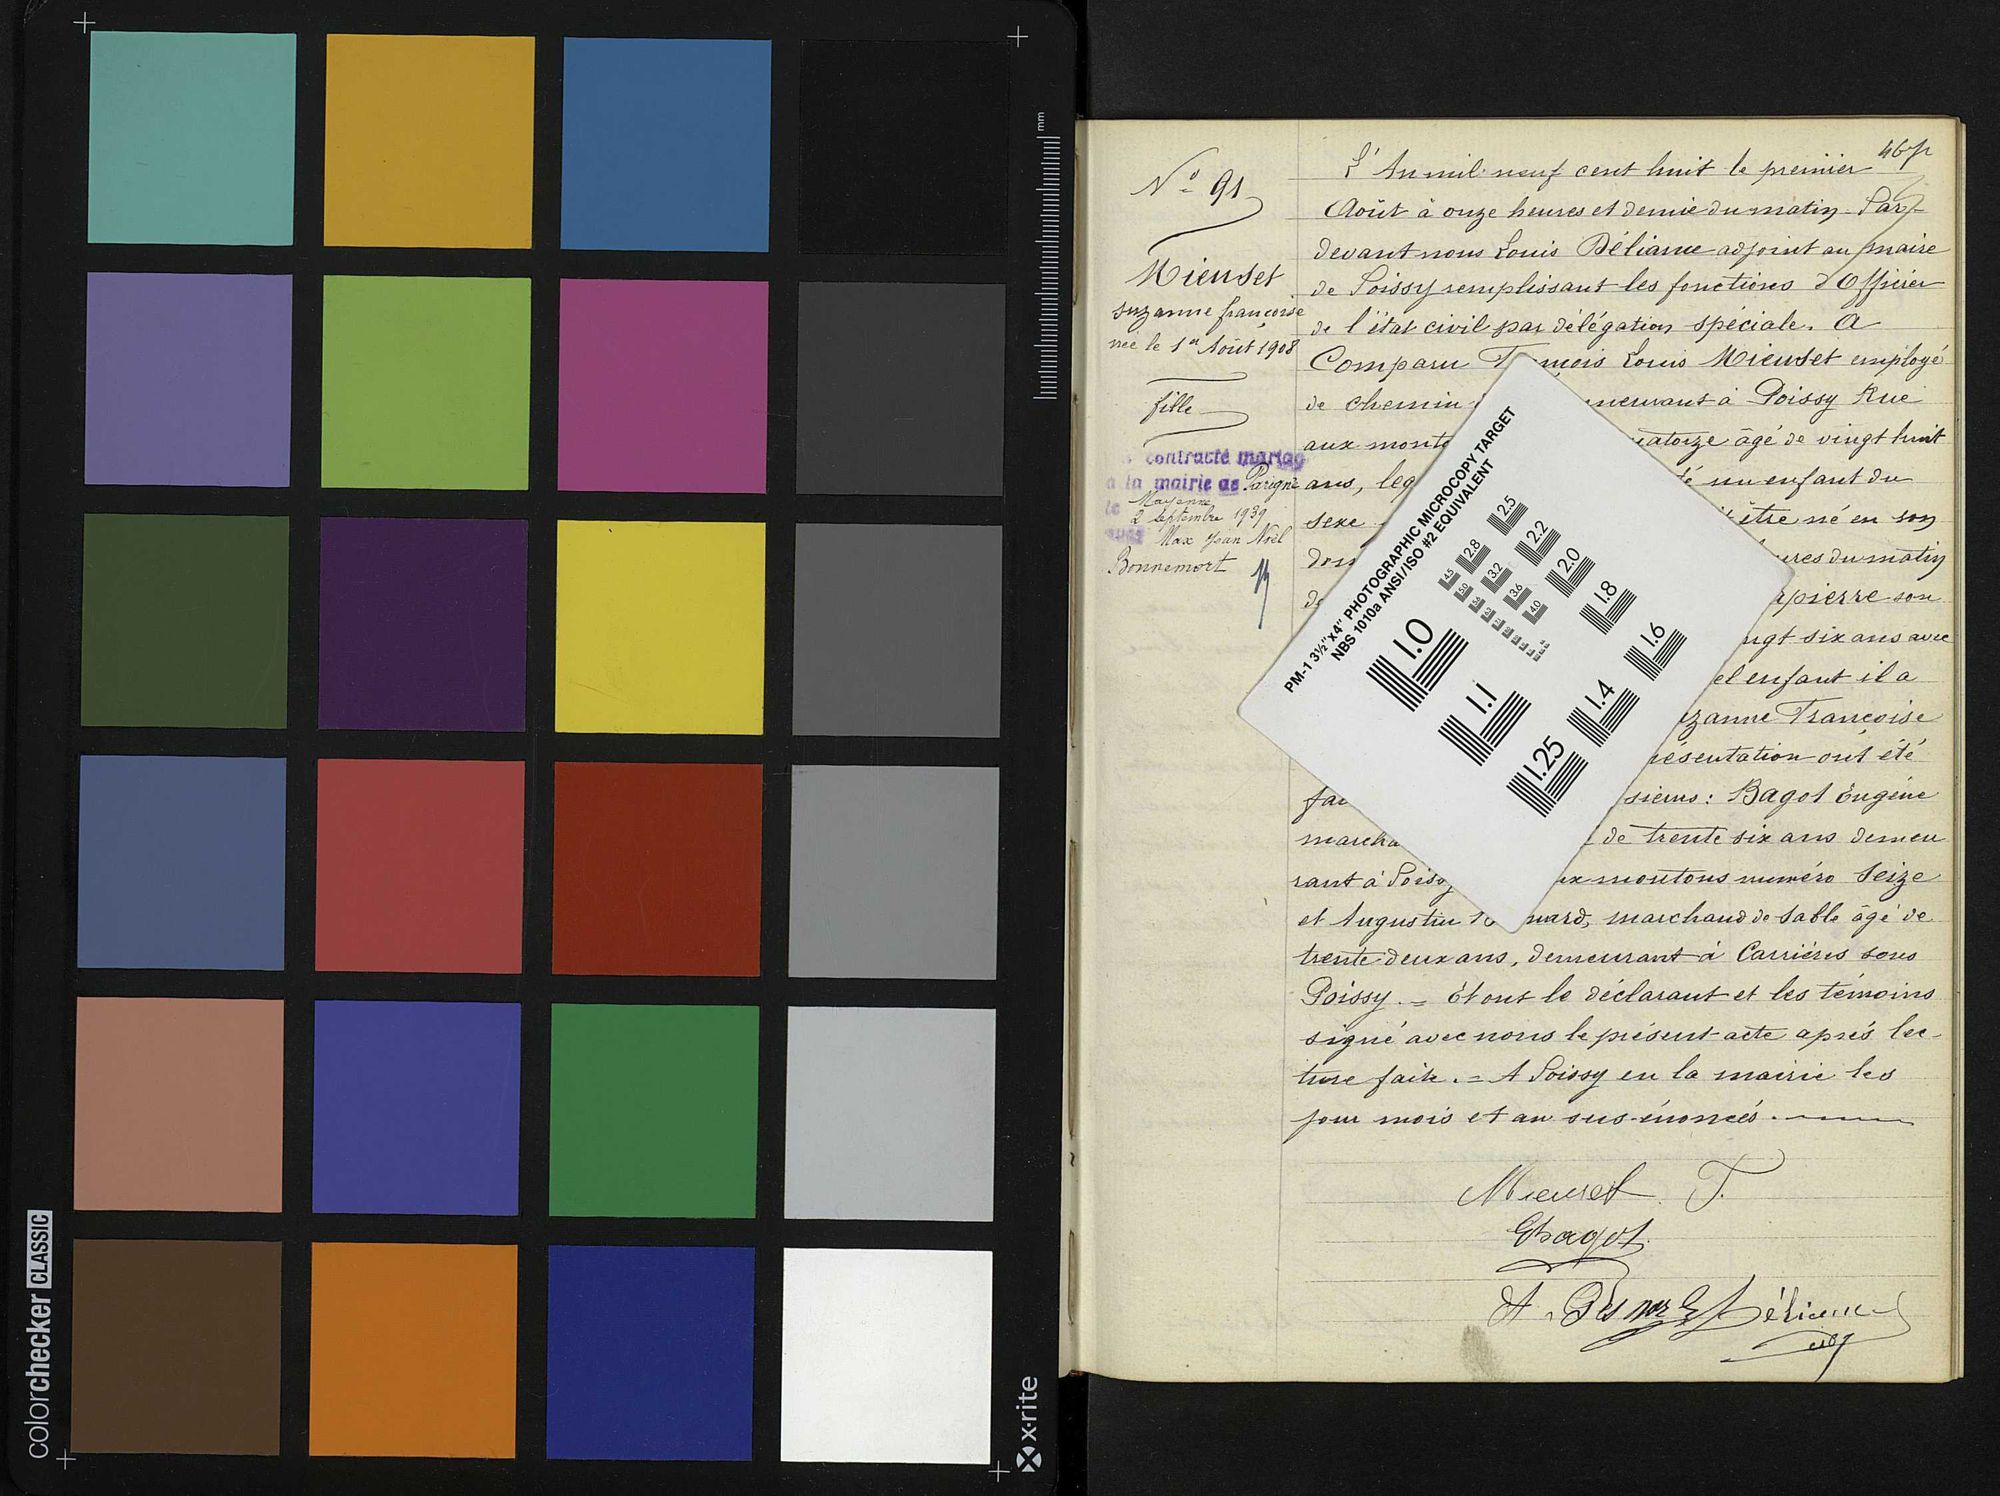 colorchecker CLASSIC
x·rite
mm
46
Nº 91
Mieuset
suzanne françoise
née le 1er Août 1908
fille
contracté mariage
à la mairie de Parigné
Mayenne
le 2 septembre 1939
avec Max Jean Noël
Bonnemort
L'An mil neuf cent huit le premier
Août à onze heures et demie du matin. Par
devant nous Louis Déliance adjoint au maire
de Poissy remplissant les fonctions d'Officier
de l'état civil par délégation spéciale. A
Comparu François Louis Mieuset employé
de chemin demeurant à Poissy Rue
aux moutons quatorze âgé de vingt huit
ans, leq un enfant du
sexe être né en son
heures du matin
pierre son
vingt six ans avec
el enfant il a
Suzanne Françoise
présentation ont été
fai sieurs : Bagot Eugène
marcha de trente six ans demeu
rant à Poissy aux moutons numéro Seize
et Augustin nard, marchand de sable âgé de
trente deux ans, demeurant à Carrières sous
Poissy. = Et ont le déclarant et les témoins
signé avec nous le présent acte après lec-
ture faite. = A Poissy en la mairie les
jour mois et an sus énoncés.
PM-1 3½"x4" PHOTOGRAPHIC MICROCOPY TARGET
NBS 1010a ANSI/ISO #2 EQUIVALENT
1.0
1.1
1.25
1.4
1.6
1.8
2.0
2.2
2.5
2.8
3.2
3.6
4.0
4.5
5.0
Mieuset F.
EBagot
Déliance